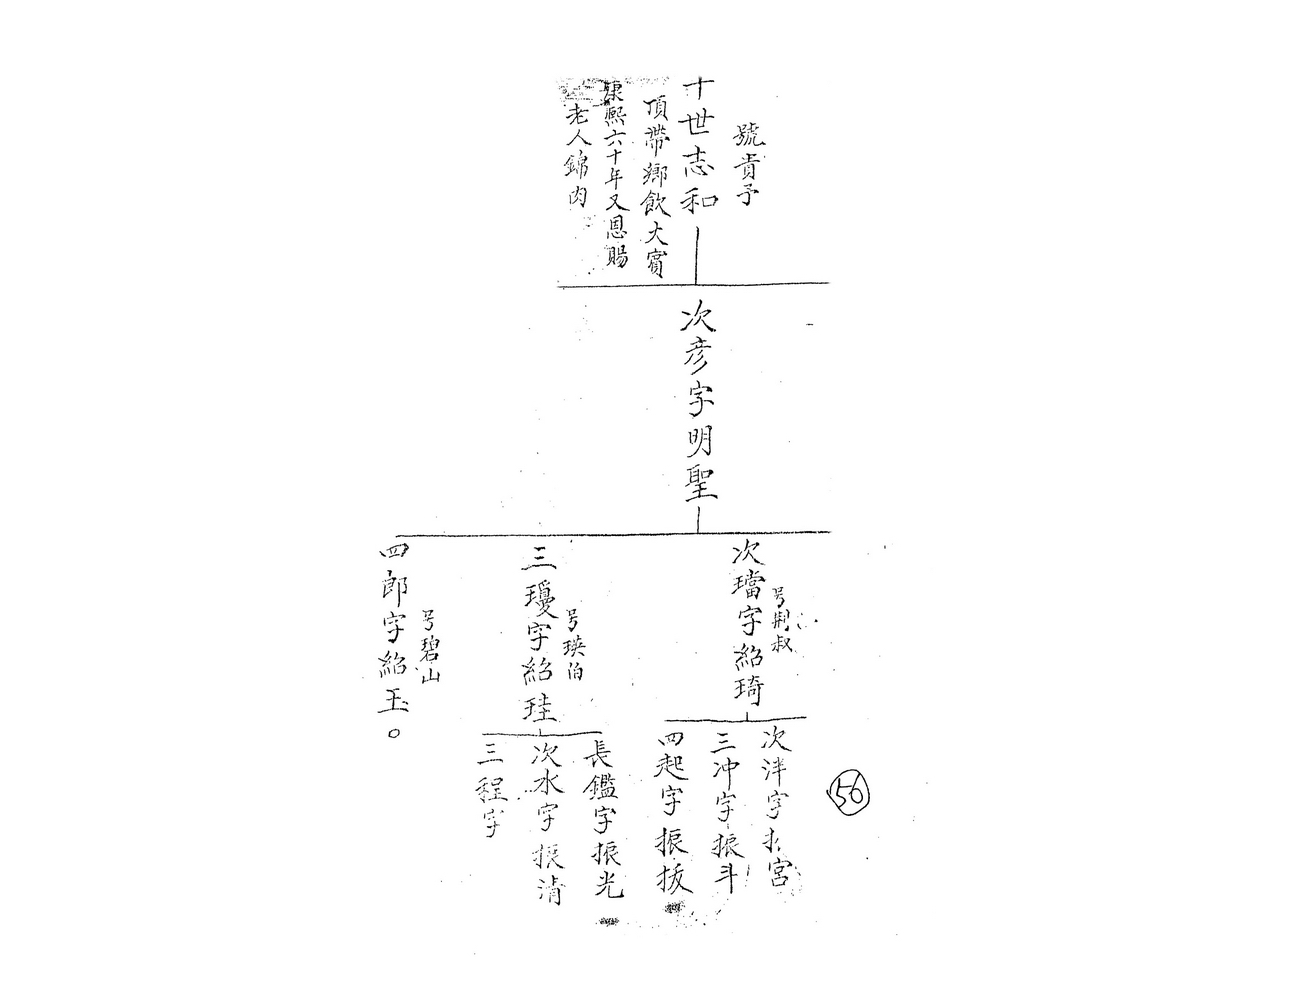 號貴予
十世志和
頂帶鄉飲大賓
康熙六十年又恩賜
老人錦肉
次彥字明聖
次璫字紹琦
号荆叔
三瓊字紹珪
号瑛伯
四郎字紹玉。
号碧山
次泮字振宮
三冲字振斗
四起字振拔
長鑑字振光
次水字振清
三程字
56